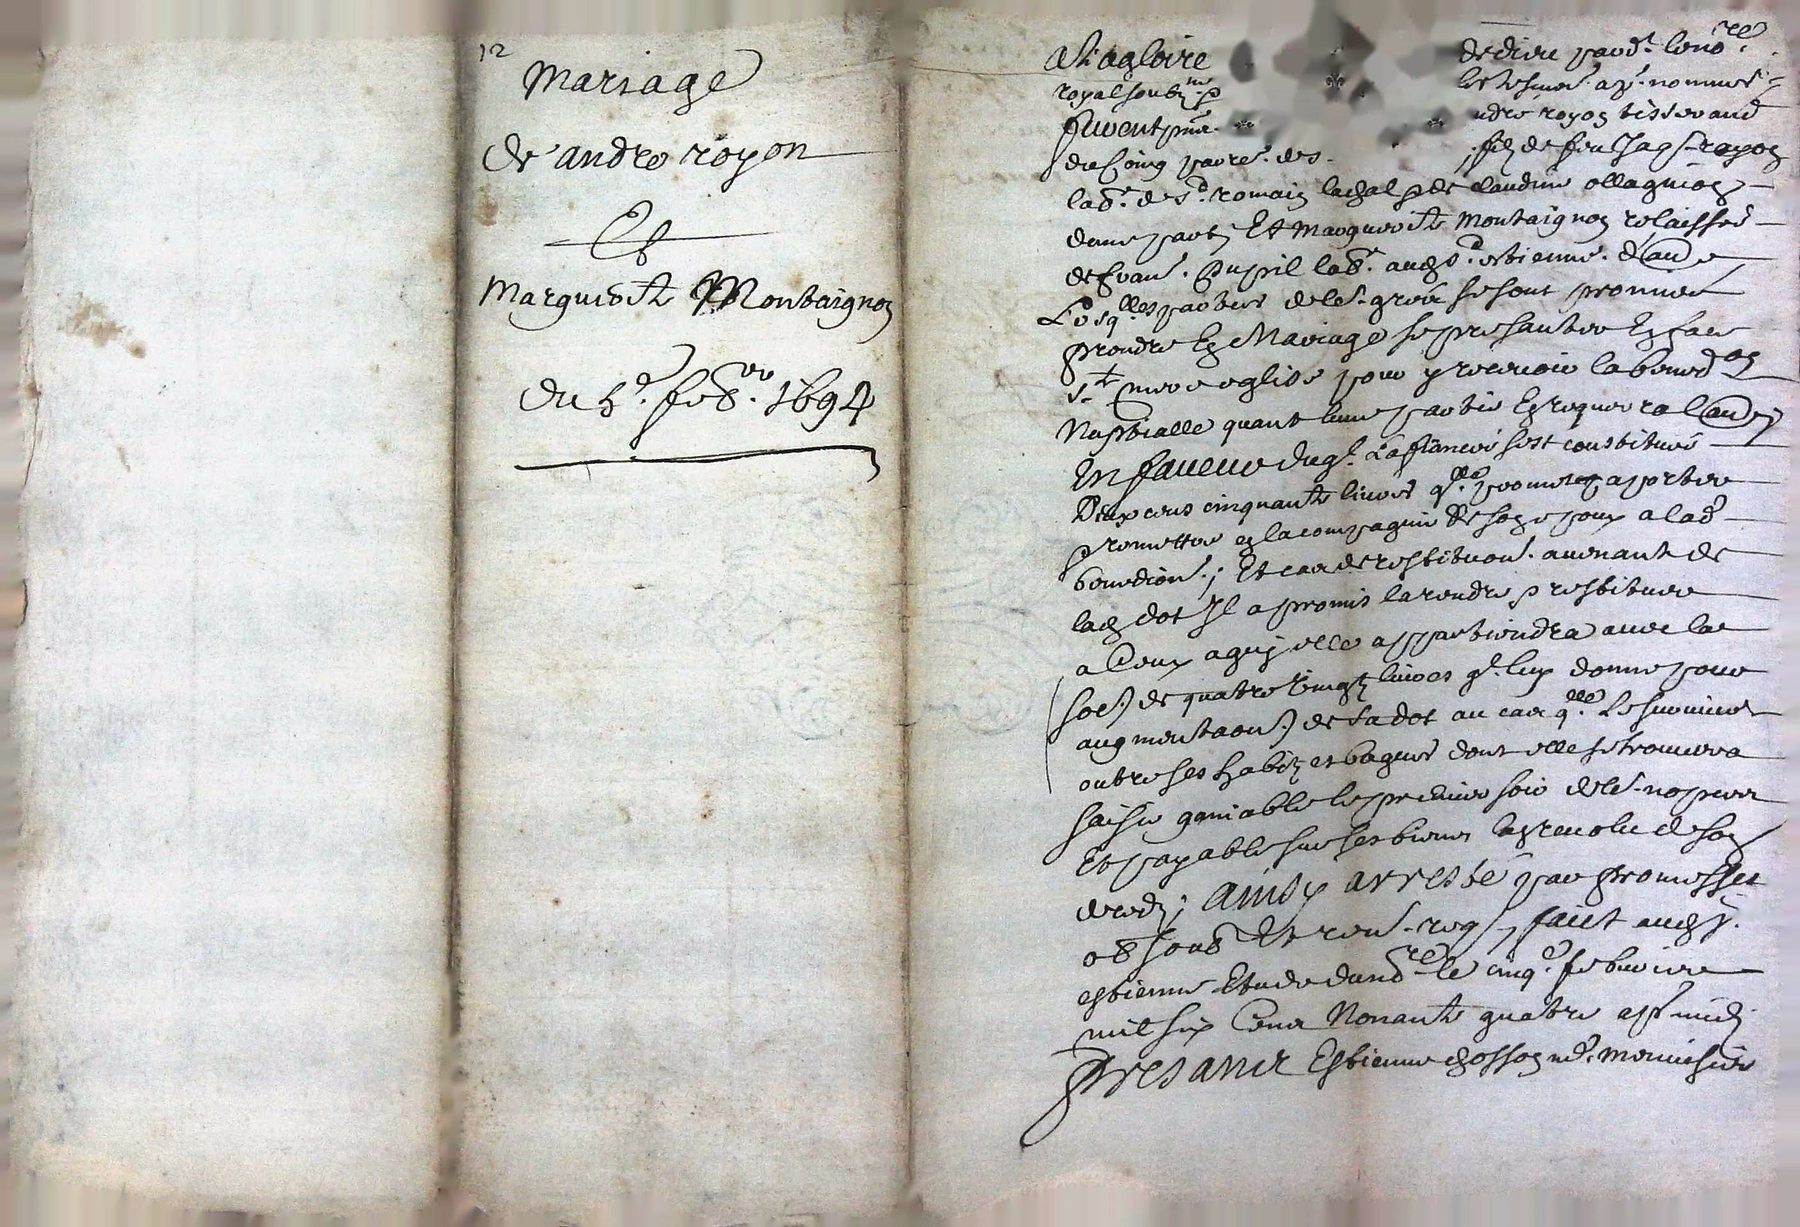 12
Mariage
de andre royon
Et
Marguerite Montaignon
du 5e feb. 1694
A la gloire de dieu pard. le no.re
royal soub.ne p les tesmoi. ap. nommes
furent pnt. andre royon tisserand
filz de feu Jaq. royon
lab. de St. romain lachal p de claudine ollagnion
dune part Et Marguerite Montaignon relaissee
de fran. Pupil lab. aud St. estienne. d'autre
Lesq.lles parties de le. gre se sont promis
prendre En Mariage se presenter En face
Ste mere eglise pour y recevoir la bened.on
Nuptialle quant lune partie En requerra l'autre
En faveur duq. La fiancee sest constitue
Deux cens cinquante livres q.lle promet aporter
promettre en la compagnie de son espoux a lad.
benedion. ; Et cas de restituon. avenant de
lad dot Il a promis la rendre p restituer
a Ceux a quy elle appartiendra avec la
soe. de quatre vingtz livres q. luy donne pour
augmentaon. de sa dot au cas q.lle Le survive
outre ses habitz et bagues dont elle se trouvera
saisie ganiable le premier soir de le. nopces
Et payable sur ses biens lan revolu de son
deced ; ainsy arresté par promesses
ob soub Et ren. req, faict aud St.
estienne Estude dud no.re le cinq.e febvrier
mil six Cens Nonante quatre ap. midi
presans Estienne chosson md. monsieur